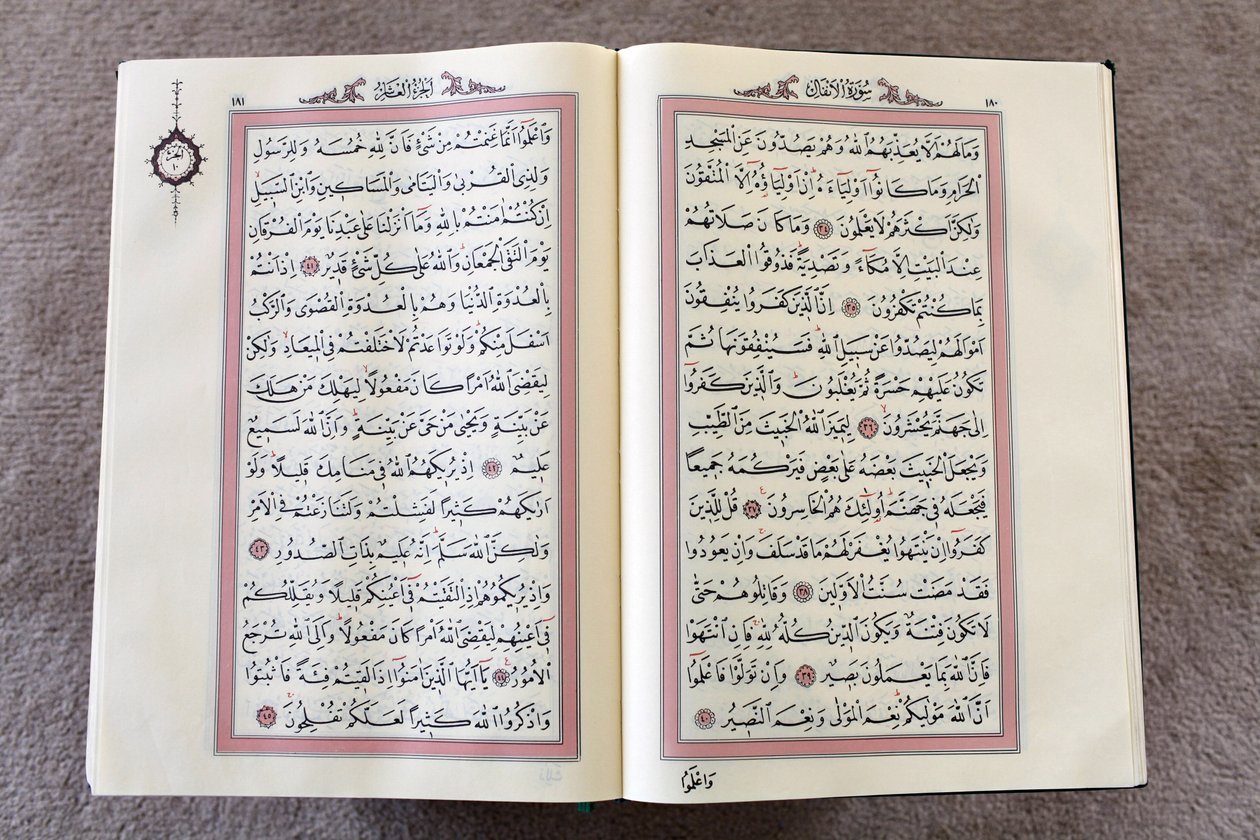 سُورَةُ الْاَنْفَالِ
١٨٠
وَمَالَهُمْ اَلَّا يُعَذِّبَهُمُ اللّٰهُ وَهُمْ يَصُدُّونَ عَنِ الْمَسْجِدِ
الْحَرَامِ وَمَا كَانُٓوا اَوْلِيَٓاءَهُ اِنْ اَوْلِيَٓاؤُ۬هُٓ اِلَّا الْمُتَّقُونَ
وَلٰكِنَّ اَكْثَرَهُمْ لَا يَعْلَمُونَ ٣٤ وَمَا كَانَ صَلَاتُهُمْ
عِنْدَ الْبَيْتِ اِلَّا مُكَٓاءً وَتَصْدِيَةًۜ فَذُوقُوا الْعَذَابَ
بِمَا كُنْتُمْ تَكْفُرُونَ ٣٥ اِنَّ الَّذِينَ كَفَرُوا يُنْفِقُونَ
اَمْوَالَهُمْ لِيَصُدُّوا عَنْ سَبِيلِ اللّٰهِۜ فَسَيُنْفِقُونَهَا ثُمَّ
تَكُونُ عَلَيْهِمْ حَسْرَةً ثُمَّ يُغْلَبُونَۜ وَالَّذِينَ كَفَرُٓوا
اِلٰى جَهَنَّمَ يُحْشَرُونَۙ ٣٦ لِيَمِيزَ اللّٰهُ الْخَبِيثَ مِنَ الطَّيِّبِ
وَيَجْعَلَ الْخَبِيثَ بَعْضَهُ عَلٰى بَعْضٍ فَيَرْكُمَهُ جَمِيعاً
فَيَجْعَلَهُ فِي جَهَنَّمَۜ اُو۬لٰٓئِكَ هُمُ الْخَاسِرُونَ۟ ٣٧ قُلْ لِلَّذِينَ
كَفَرُٓوا اِنْ يَنْتَهُوا يُغْفَرْ لَهُمْ مَا قَدْ سَلَفَۚ وَاِنْ يَعُودُوا
فَقَدْ مَضَتْ سُنَّتُ الْاَوَّلِينَ ٣٨ وَقَاتِلُوهُمْ حَتّٰى
لَا تَكُونَ فِتْنَةٌ وَيَكُونَ الدِّينُ كُلُّهُ لِلّٰهِۚ فَاِنِ انْتَهَوْا
فَاِنَّ اللّٰهَ بِمَا يَعْمَلُونَ بَصِيرٌ ٣٩ وَاِنْ تَوَلَّوْا فَاعْلَمُٓوا
اَنَّ اللّٰهَ مَوْلٰيكُمْۜ نِعْمَ الْمَوْلٰى وَنِعْمَ النَّصِيرُ ٤٠
وَاعْلَمُٓوا
اَلْجُزْءُ الْعَاشِرُ
١٨١
الجزء
١٠
وَاعْلَمُٓوا اَنَّمَا غَنِمْتُمْ مِنْ شَيْءٍ فَاَنَّ لِلّٰهِ خُمُسَهُ وَلِلرَّسُولِ
وَلِذِي الْقُرْبٰى وَالْيَتَامٰى وَالْمَسَاكِينِ وَابْنِ السَّبِيلِۙ
اِنْ كُنْتُمْ اٰمَنْتُمْ بِاللّٰهِ وَمَٓا اَنْزَلْنَا عَلٰى عَبْدِنَا يَوْمَ الْفُرْقَانِ
يَوْمَ الْتَقَى الْجَمْعَانِۜ وَاللّٰهُ عَلٰى كُلِّ شَيْءٍ قَدِيرٌ ٤١ اِذْ اَنْتُمْ
بِالْعُدْوَةِ الدُّنْيَا وَهُمْ بِالْعُدْوَةِ الْقُصْوٰى وَالرَّكْبُ
اَسْفَلَ مِنْكُمْۜ وَلَوْ تَوَاعَدْتُمْ لَاخْتَلَفْتُمْ فِي الْمِيعَادِۙ وَلٰكِنْ
لِيَقْضِيَ اللّٰهُ اَمْراً كَانَ مَفْعُولاًۙ لِيَهْلِكَ مَنْ هَلَكَ
عَنْ بَيِّنَةٍ وَيَحْيٰى مَنْ حَيَّ عَنْ بَيِّنَةٍۜ وَاِنَّ اللّٰهَ لَسَمِيعٌ
عَلِيمٌۙ ٤٢ اِذْ يُرِيكَهُمُ اللّٰهُ فِي مَنَامِكَ قَلِيلاًۜ وَلَوْ
اَرٰيكَهُمْ كَثِيراً لَفَشِلْتُمْ وَلَتَنَازَعْتُمْ فِي الْاَمْرِ
وَلٰكِنَّ اللّٰهَ سَلَّمَۜ اِنَّهُ عَلِيمٌ بِذَاتِ الصُّدُورِ ٤٣
وَاِذْ يُرِيكُمُوهُمْ اِذِ الْتَقَيْتُمْ فِٓي اَعْيُنِكُمْ قَلِيلاً وَيُقَلِّلُكُمْ
فِٓي اَعْيُنِهِمْ لِيَقْضِيَ اللّٰهُ اَمْراً كَانَ مَفْعُولاًۜ وَاِلَى اللّٰهِ تُرْجَعُ
الْاُمُورُ۟ ٤٤ يَٓا اَيُّهَا الَّذِينَ اٰمَنُٓوا اِذَا لَقِيتُمْ فِئَةً فَاثْبُتُوا
وَاذْكُرُوا اللّٰهَ كَثِيراً لَعَلَّكُمْ تُفْلِحُونَۚ ٤٥